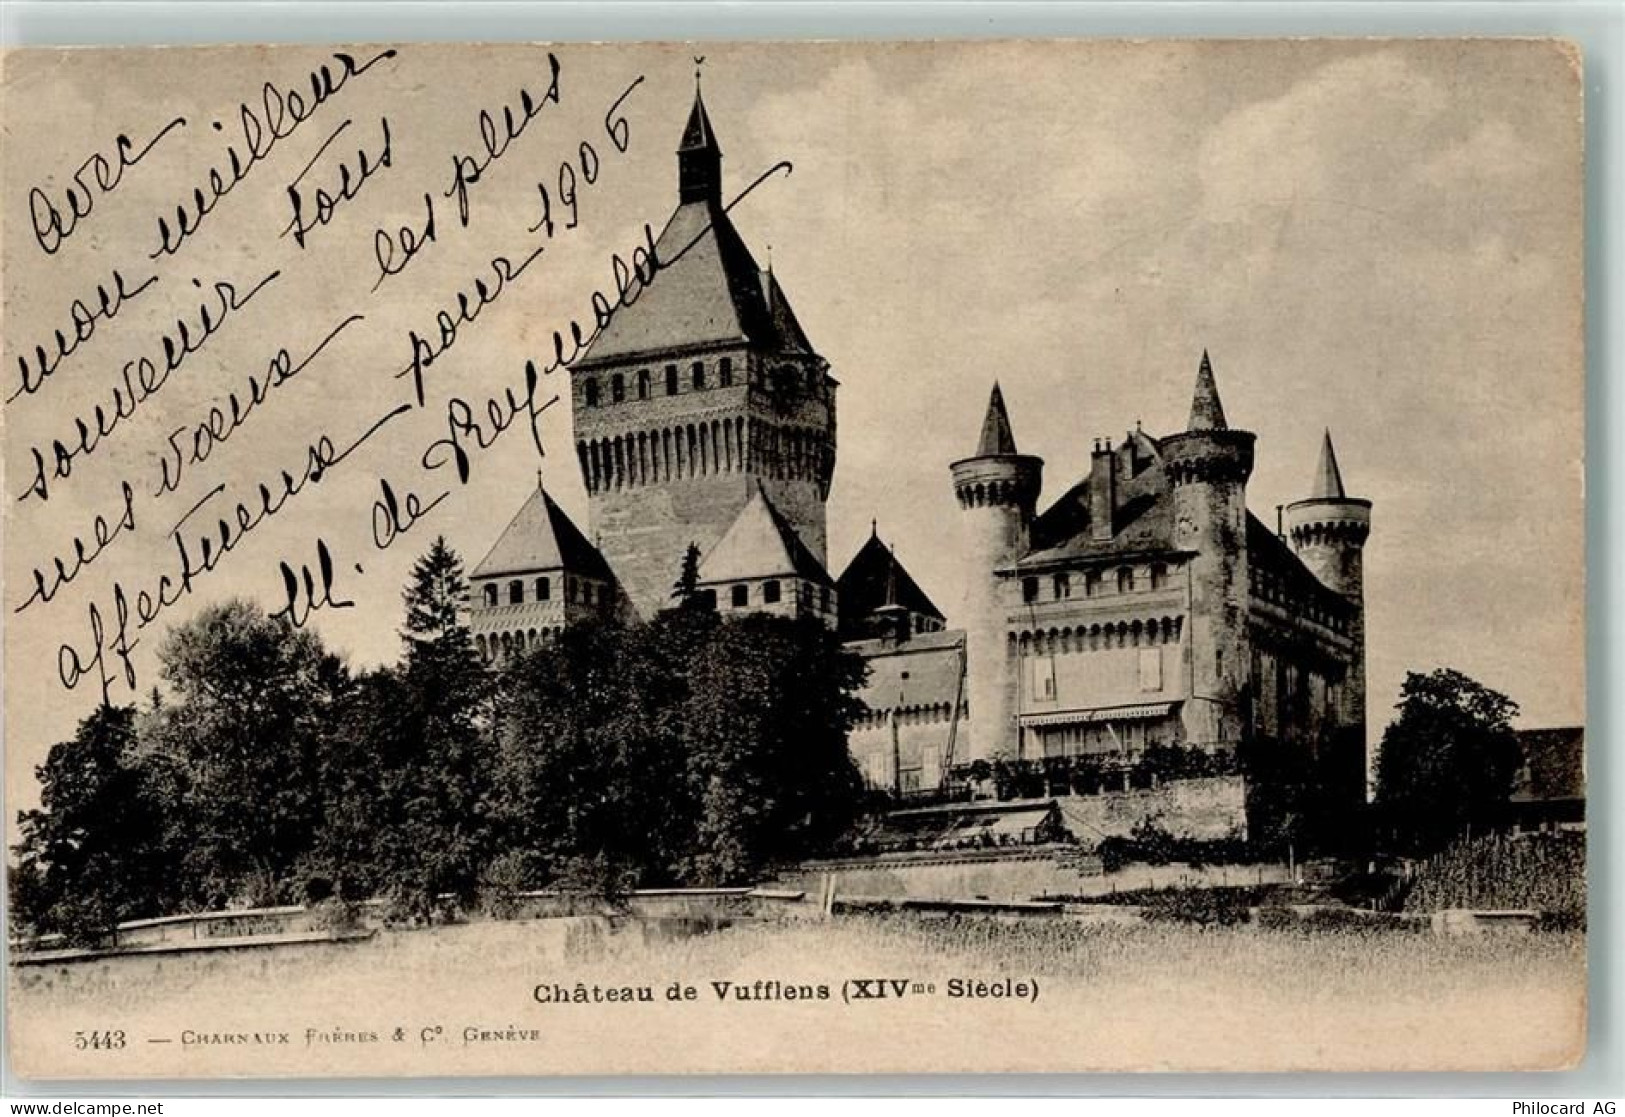 Avec
mon meilleur
souvenir tous
mes vœux les plus
affectueux pour 1906
M. de Reynold
Château de Vufflens (XIVme Siècle)
5443 — CHARNAUX FRÈRES & Co. GENÈVE
delcampe.net
Philocard AG